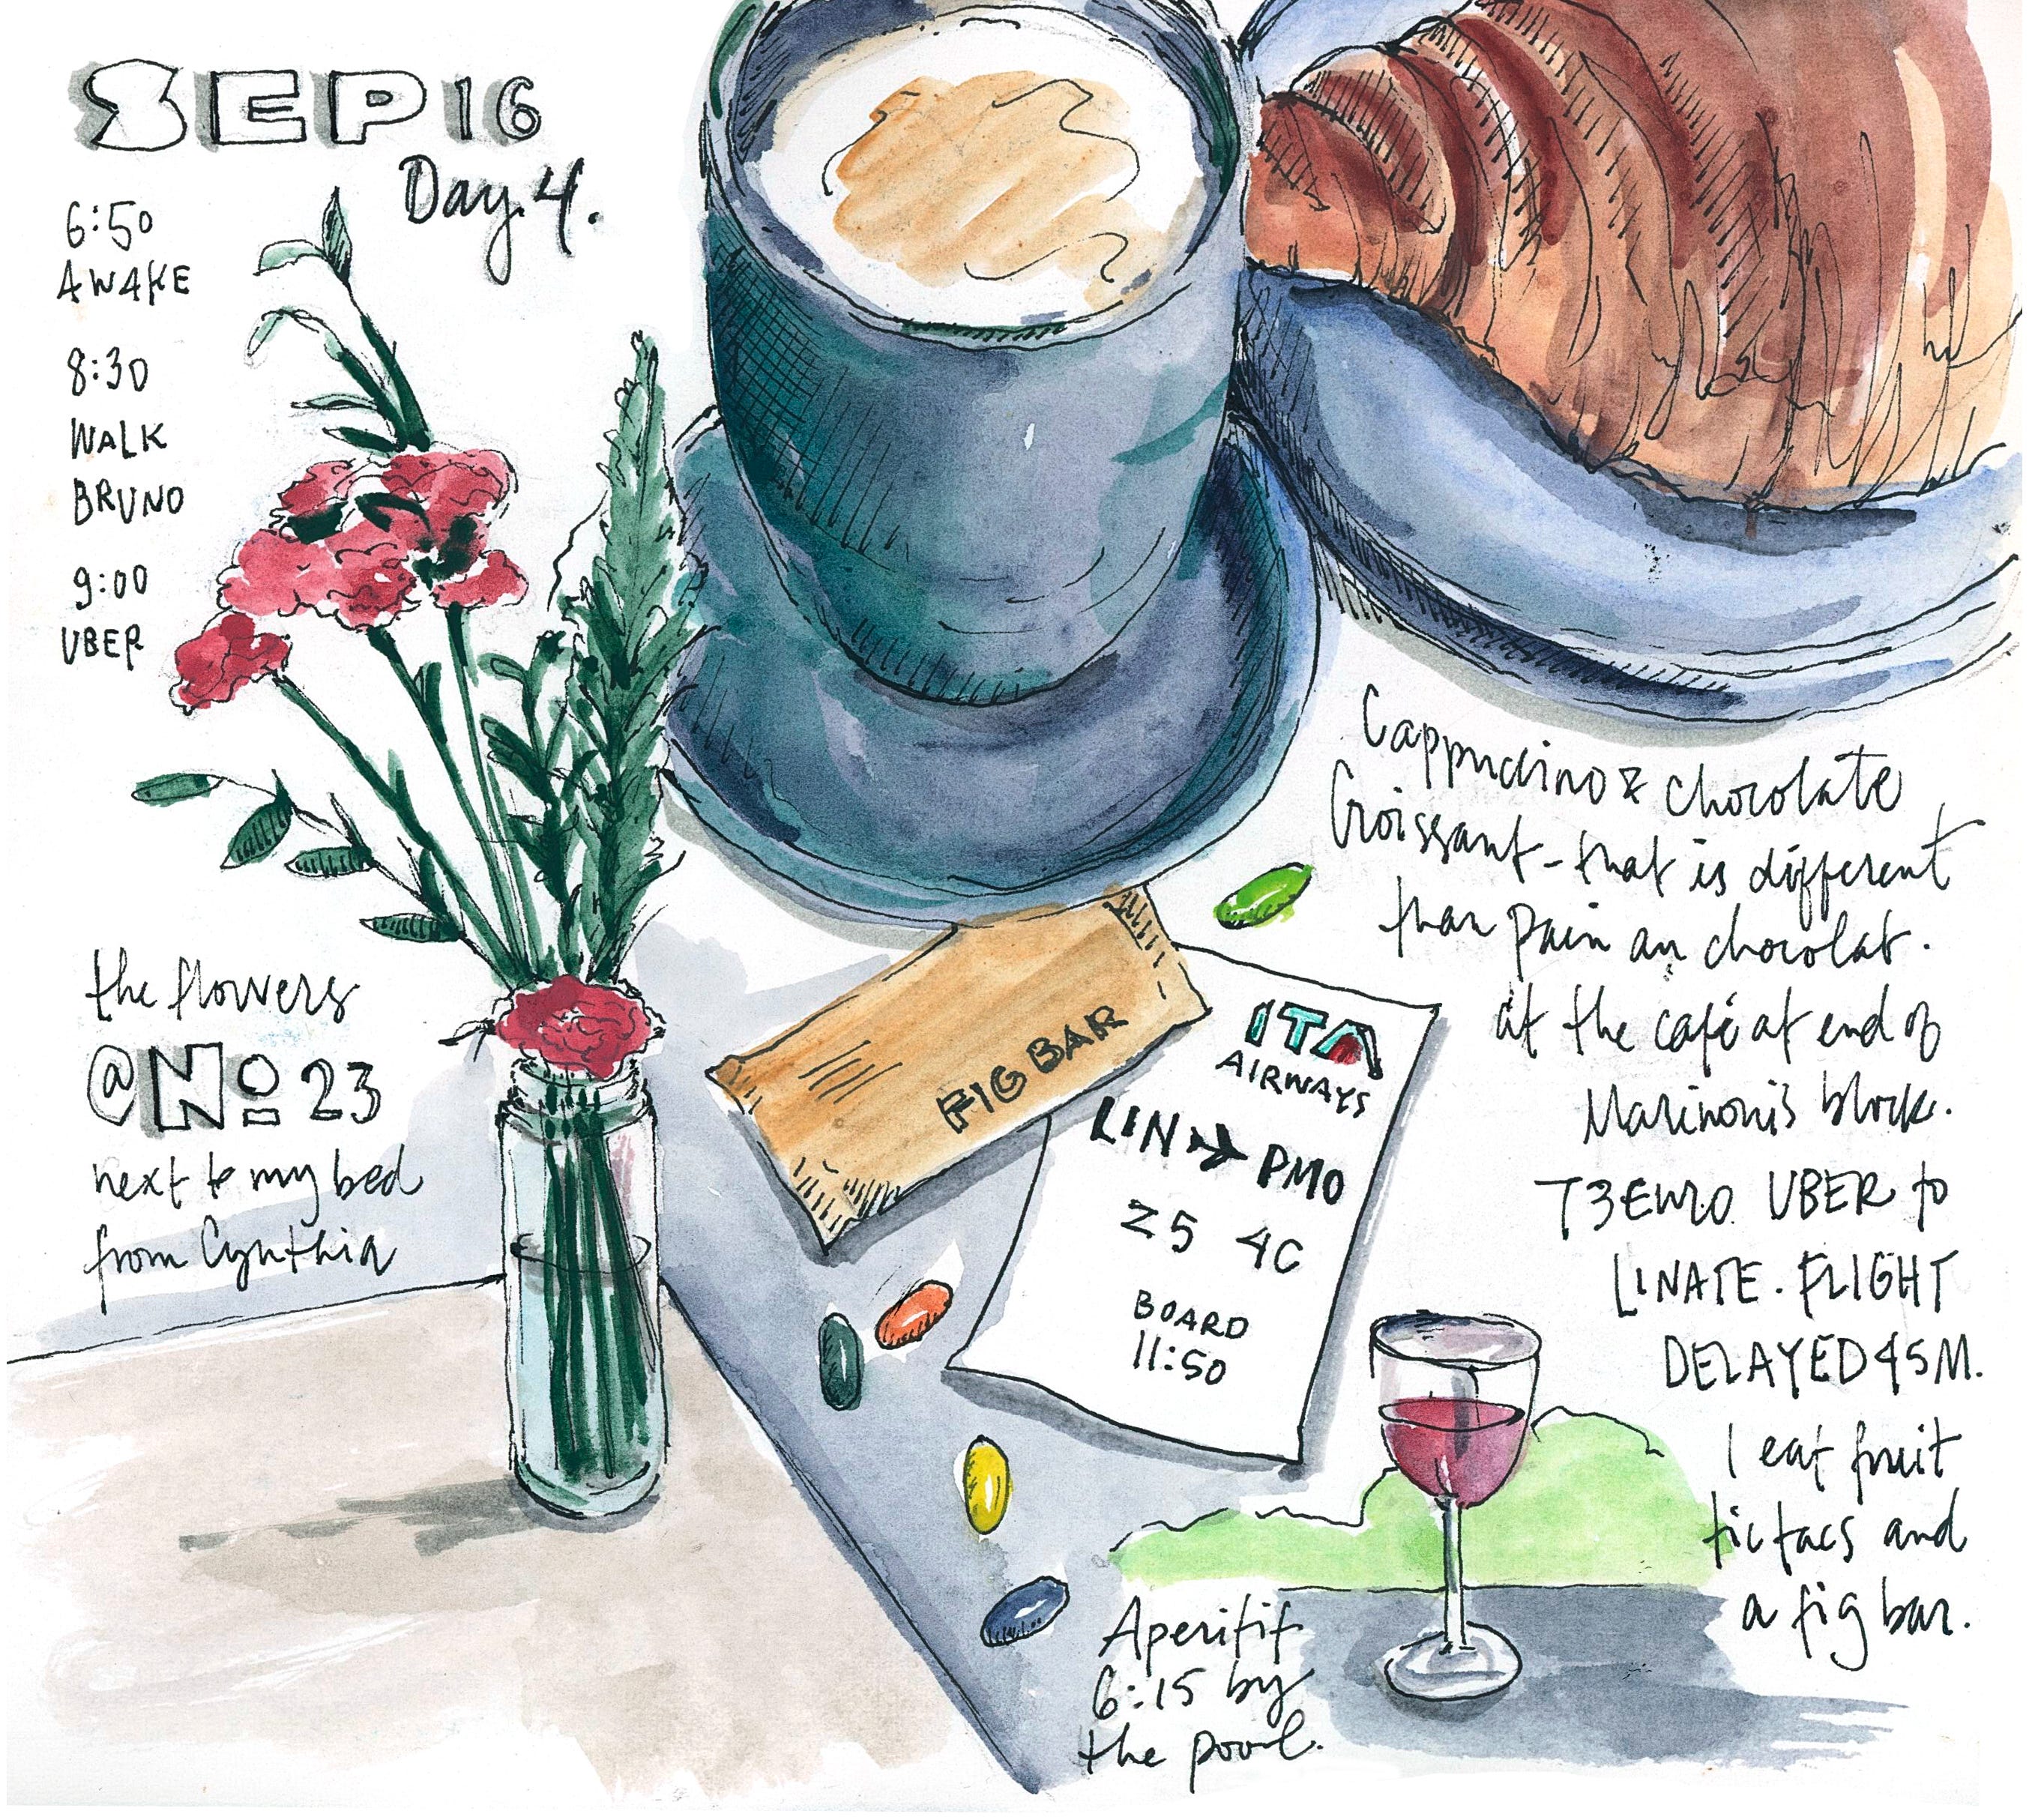 SEP 16
Day 4.
6:50
AWAKE
8:30
WALK
BRUNO
9:00
UBER
the flowers
@ No 23
next to my bed
from Cynthia
Cappuccino & chocolate
Croissant - that is different
than pain au chocolat.
at the café at end of
Marinoni's block.
73 EURO UBER to
LINATE. FLIGHT
DELAYED 45M.
I eat fruit
tic tacs and
a fig bar.
FIG BAR
ITA
AIRWAYS
LIN → PMO
Z5 4C
BOARD
11:50
Aperitif
6:15 by
the pool.